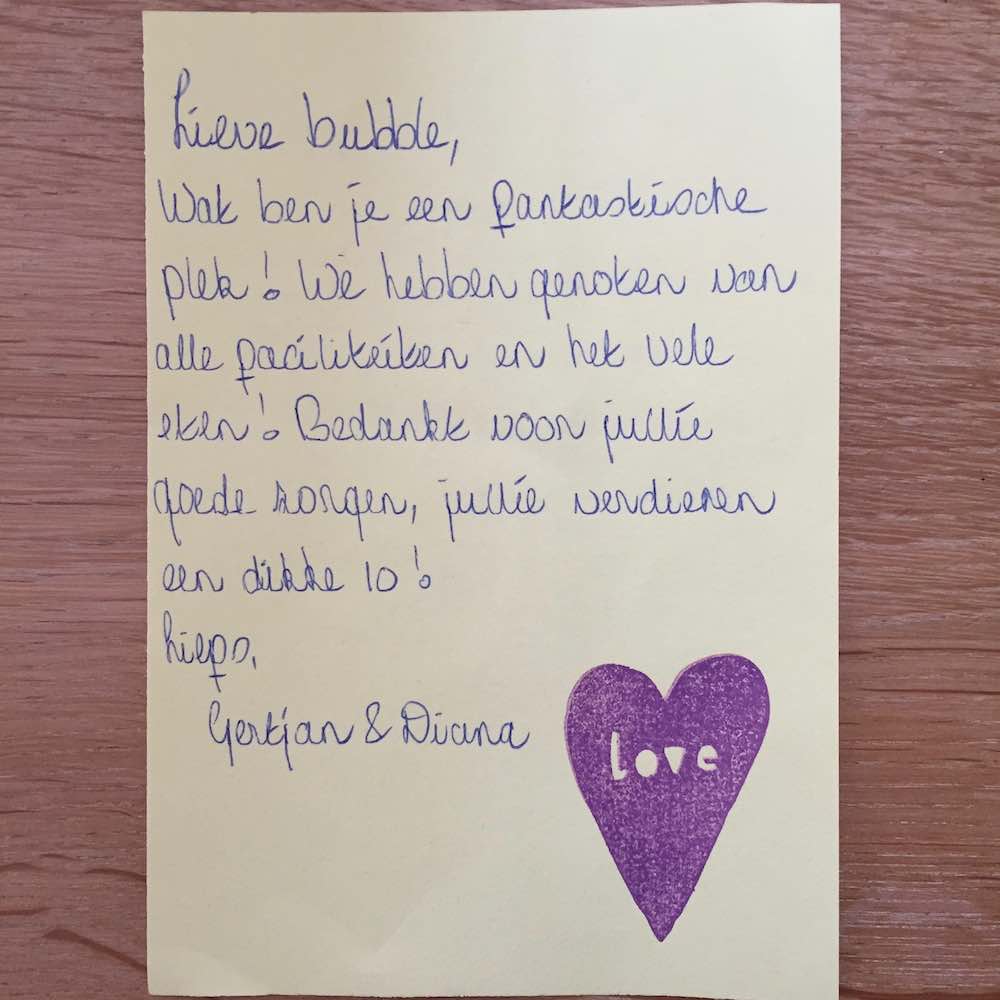 Lieve bubble,
Wat ben je een fantastische
plek! We hebben genoten van
alle faciliteiten en het vele
eten! Bedankt voor jullie
goede zorgen, jullie verdienen
een dikke 10!
Liefs,
Gertjan & Diana
love